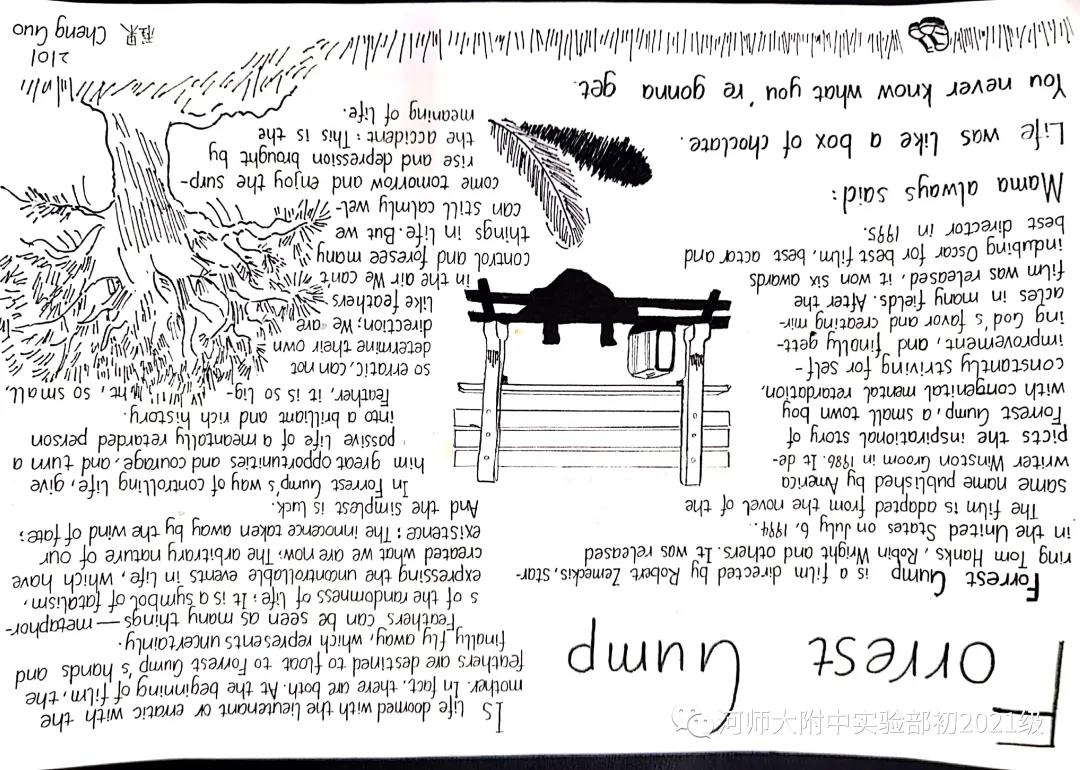 Forrest Gump
Forrest Gump is a film directed by Robert Zemeckis, star-
ring Tom Hanks, Robin Wright and others. It was released
in the United States on July 6, 1994..
The film is adapted from the novel of the
same name published by America
writer Winston Groom in 1986. It de-
picts the inspirational story of
Forrest Gump, a small town boy
with congenital mental retardation,
constantly striving for self-
improvement, and finally gett-
ing God's favor and creating mir-
acles in many fields. After the
film was released, it won six awards
indubing Oscar for best film, best actor and
best director in 1995.
Mama always said:
Life was like a box of choclate.
You never know what you're gonna get.
Is life doomed with the lieutenant or erratic with the
mother. In fact, there are both. At the beginning of film, the
feathers are destined to float to Forrest Gump's hands and
finally fly away, which represents uncertainly.
Feathers can be seen as many things—metaphor-
s of the randomness of life; It is a symbol of fatalism,
expressing the uncontrollable events in life, which have
created what we are now; The arbitrary nature of our
existence; The innocence taken away by the wind of fate;
And the simplest is luck.
In Forrest Gump's way of controlling life, give
him great opportunities and courage, and turn a
possive life of a meantally retarded person
into a brilliant and rich history.
Feather, it is so lig-ht, so small,
so erratic, can not
determine their own
direction; We are
like feathers
in the air We can't
control and foresee many
things in life. But we
can still calmly wel-
come tomorrow and enjoy the surp-
rise and depression brought by
the accident: This is the
meaning of life.
2101
程果 Cheng Guo
河师大附中实验部初2021级